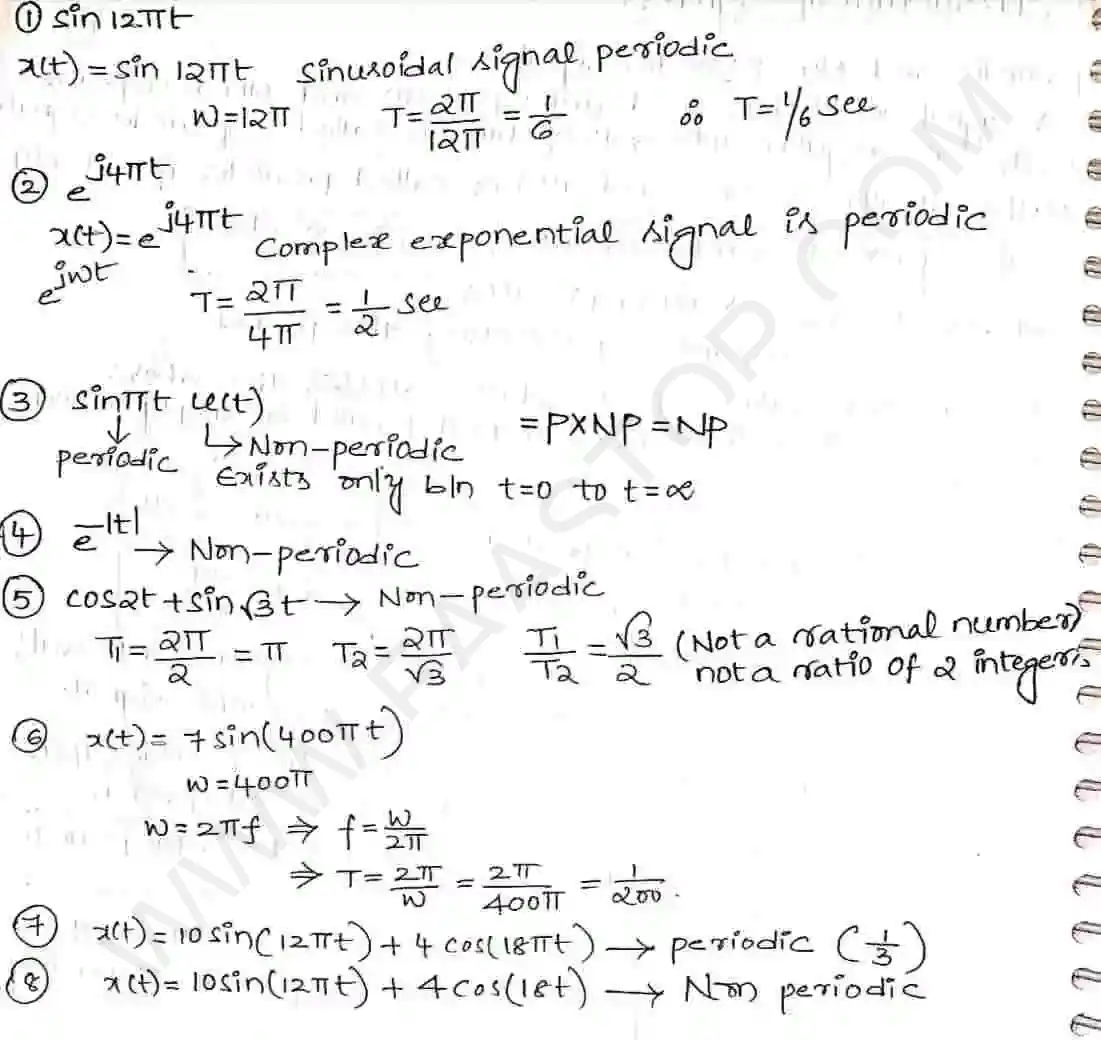 ① sin 12πt
x(t) = sin 12πt sinusoidal signal periodic
W=12π T= 2π/12π = 1/6 ∴ T=1/6 sec
② e^j4πt
x(t)=e^j4πt Complex exponential signal is periodic
e^jwt T= 2π/4π = 1/2 sec
③ sinπt u(t) = P×NP = NP
↓ periodic ↳ Non-periodic
Exists only b/n t=0 to t=∞
④ e^-|t| → Non-periodic
⑤ cos2t + sin√3t → Non-periodic
T1= 2π/2 = π T2= 2π/√3 T1/T2 = √3/2 (Not a rational number)
not a ratio of 2 integers
⑥ x(t)= 7 sin(400πt)
W=400π
W=2πf ⇒ f= W/2π
⇒ T= 2π/W = 2π/400π = 1/200.
⑦ x(t)=10sin(12πt) + 4 cos(18πt) → periodic (1/3)
⑧ x(t)= 10sin(12πt) + 4cos(18t) → Non periodic
WWW.FAASTOP.COM